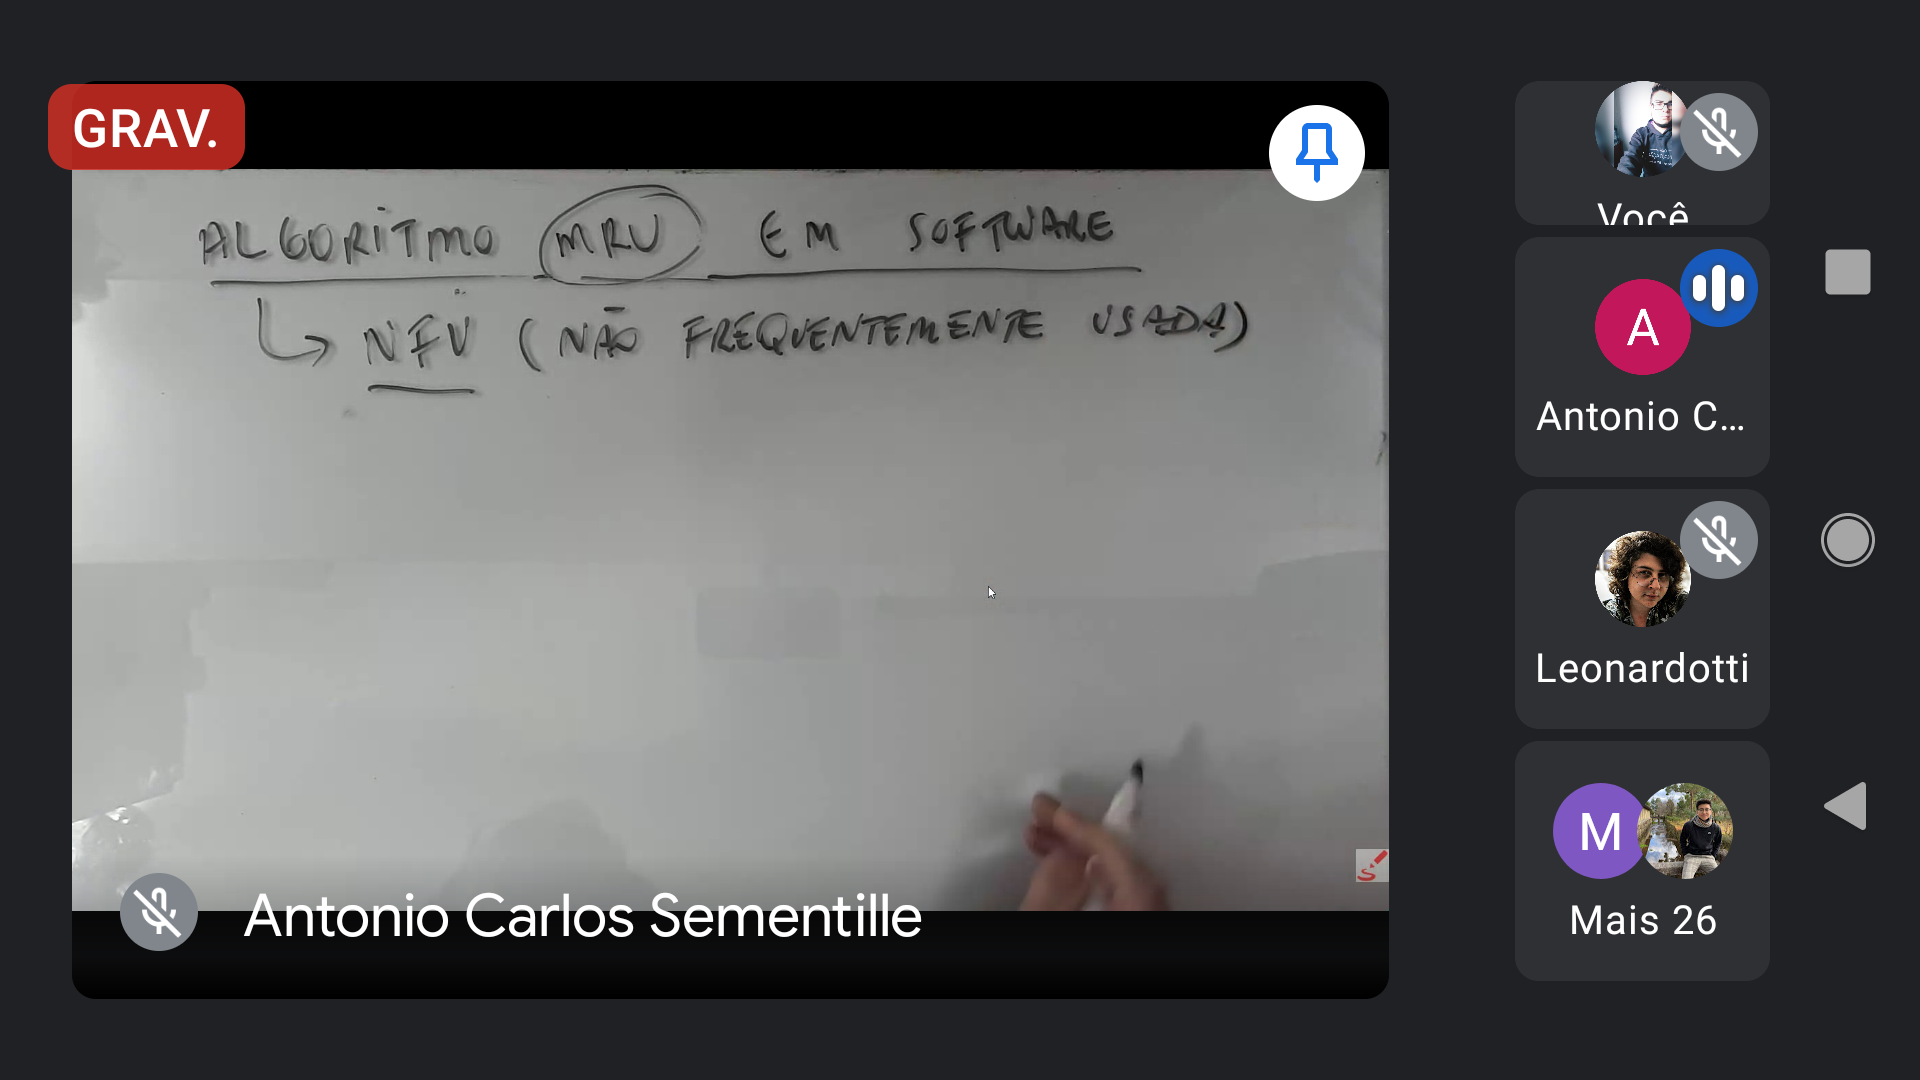 GRAV.
ALGORITMO MRU EM SOFTWARE
NFU (NÃO FREQUENTEMENTE USADA)
Antonio Carlos Sementille
Você
A
Antonio C...
Leonardotti
M
Mais 26